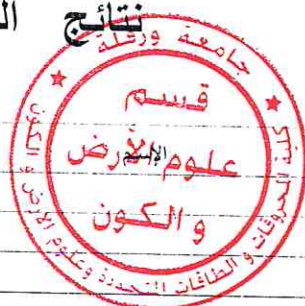 نتائج
جامعة ورقلة
قسم
علوم الأرض
الإسم
و الكون
كلية المحروقات و الطاقات المتجددة وعلوم الأرض و الكون